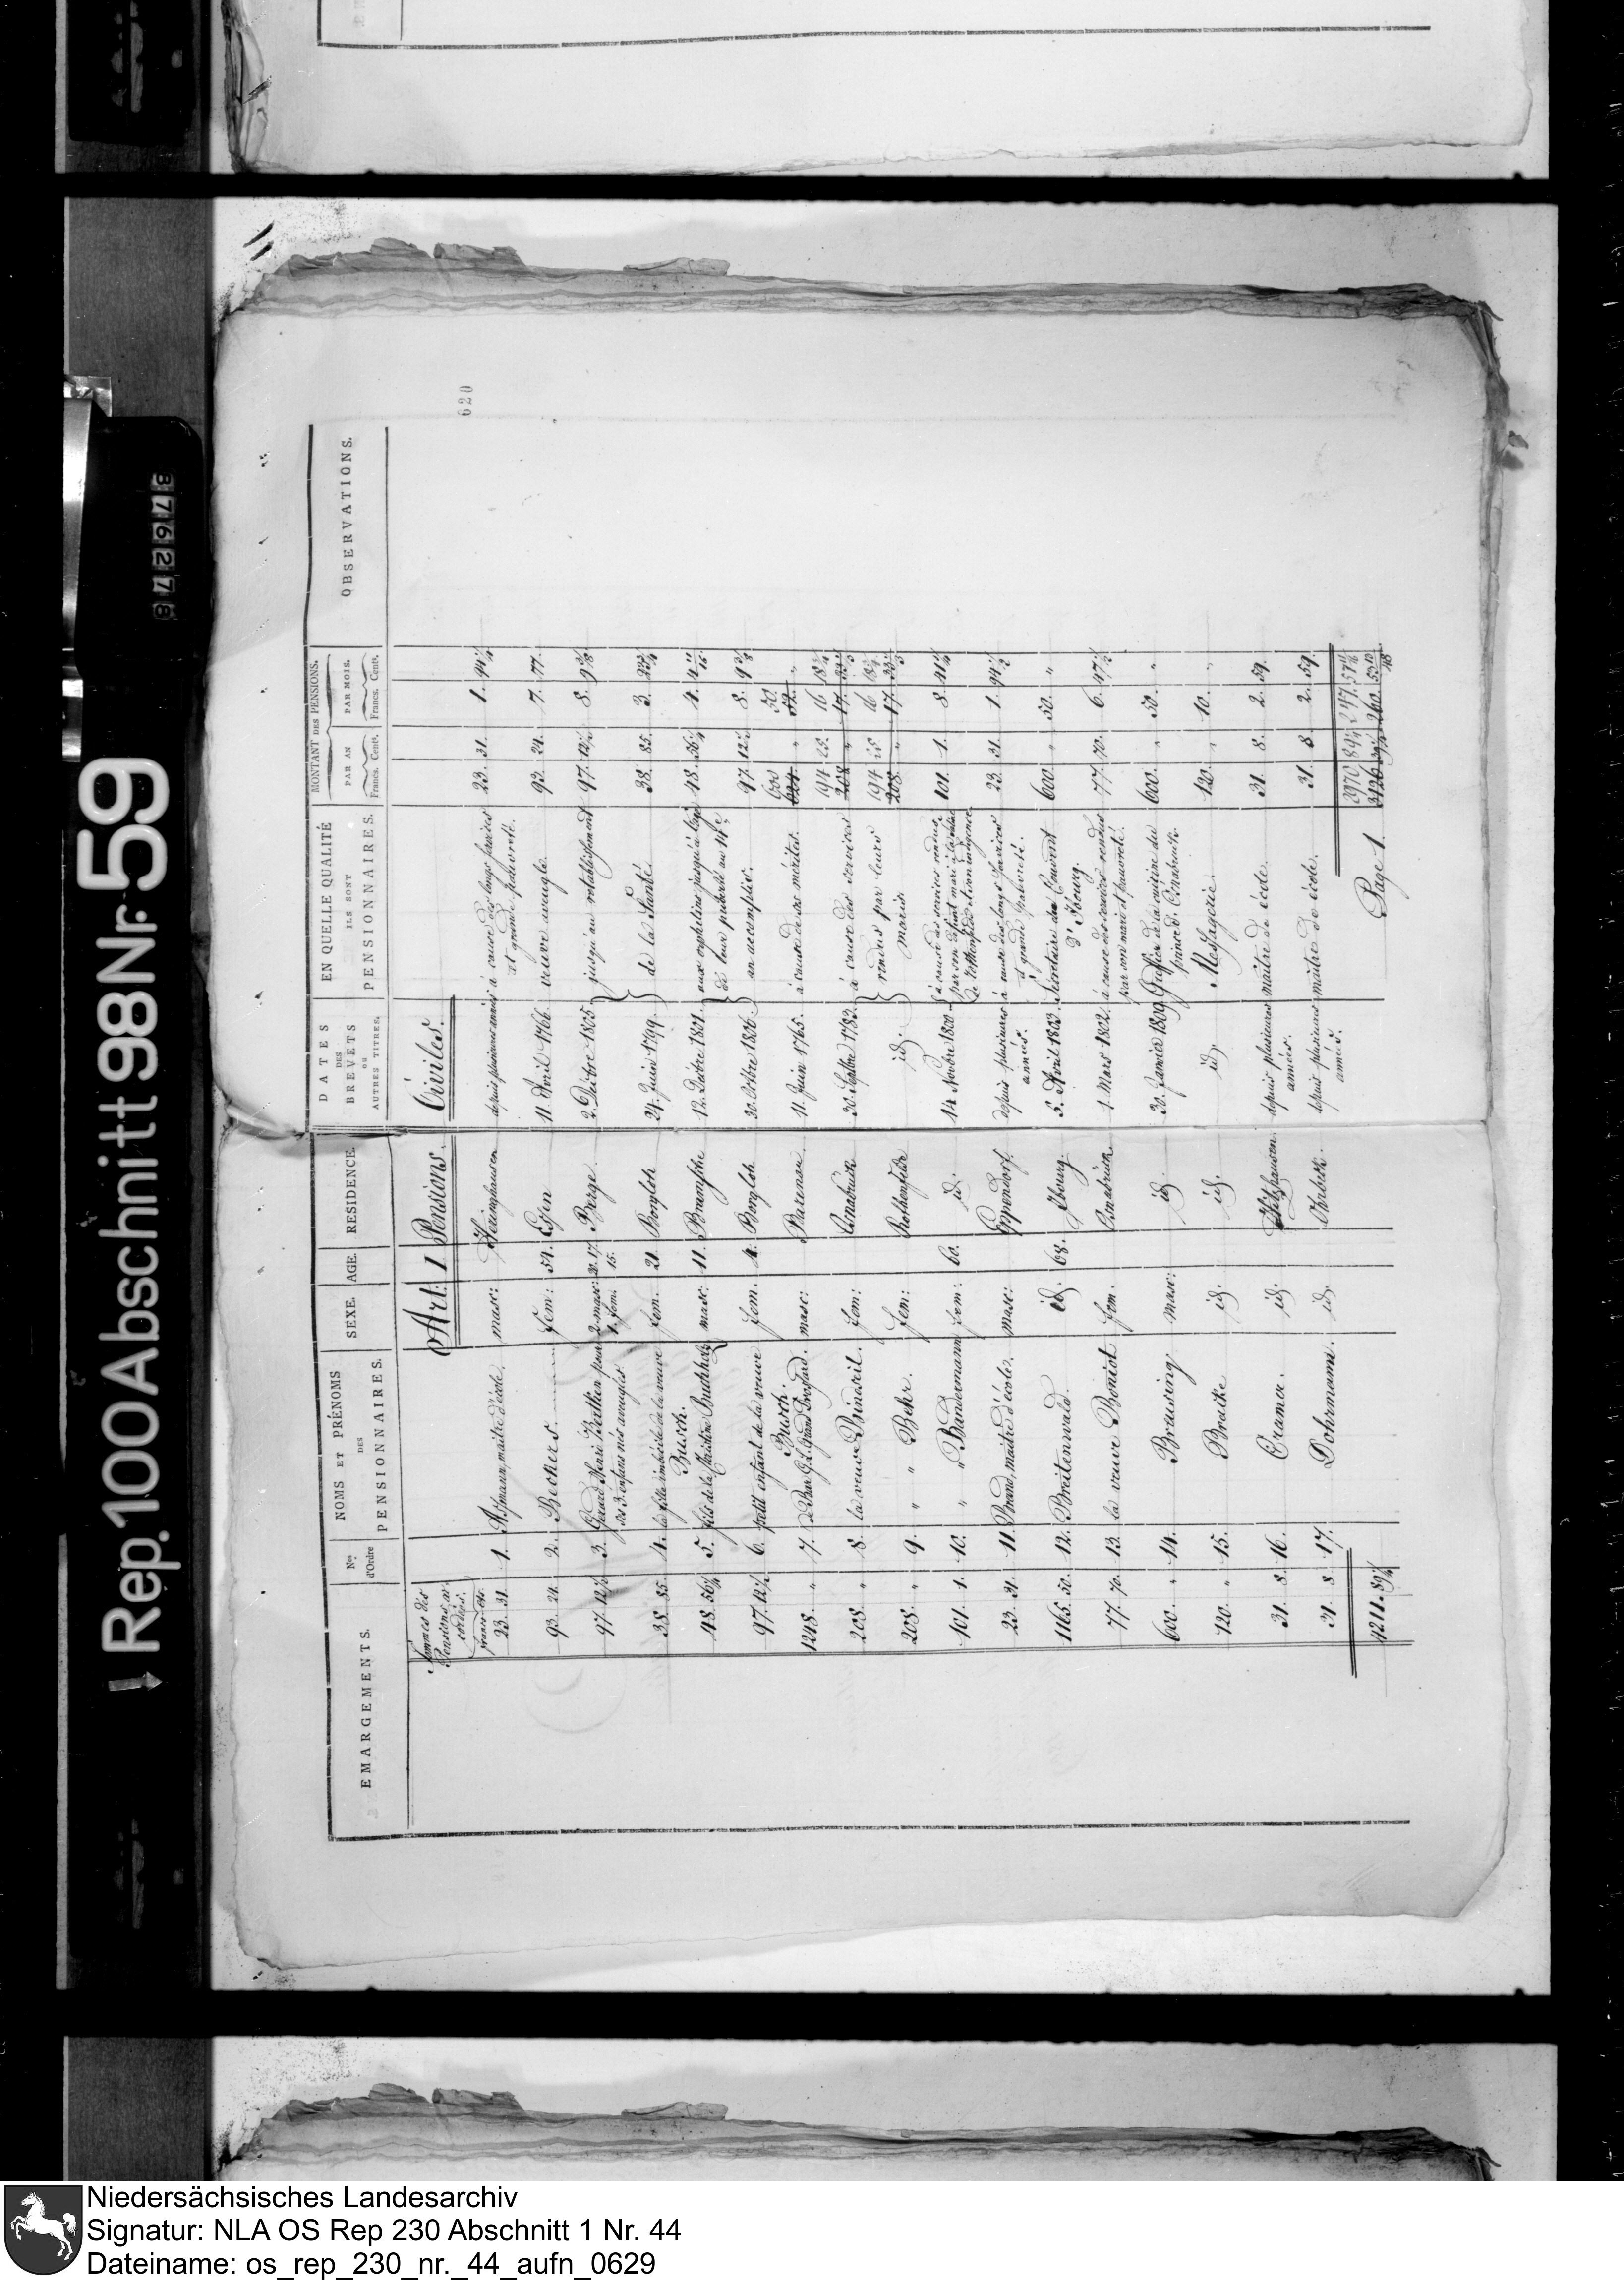 Rep. 100 A Abschnitt 98 Nr. 59
876278
620
EMARGEMENTS.
Nos d'Ordre
NOMS ET PRÉNOMS DES PENSIONNAIRES.
SEXE.
AGE.
RESIDENCE
DATES DES BREVETS OU AUTRES TITRES.
EN QUELLE QUALITÉ ILS SONT PENSIONNAIRES.
MONTANT DES PENSIONS.
PAR AN
Francs. Cents.
PAR MOIS.
Francs. Cents.
OBSERVATIONS.
Sommes des Pensions accordées.
francs cts.
Art: 1 Pensions Civiles.
23. 31. 1. maitre d'école. masc: Heringhausen depuis plusieurs années à cause des longs services et grande pauvreté. 23. 31. 1. 94¼
93. 24. 2. Beckers fem: 54. Essen 11. Avril 1766. veuve aveugle. 93. 24. 7. 77.
97. 12½ 3. Gerard Henri pour ses 3. enfans nés aveugles. 2. masc: 1. fem: 17. 15. Berge. 2. Decbre 1805. jusqu'au rétablissement 97. 12½ 8. 9⅜
38. 85. 4. la fille imbécile de la veuve Busch. fem. 21. Borgloh 24. Juin 1799. de la Santé. 38. 85. 3. 23¾
48. 56¼ 5. fils de la Christine Buchholz masc: 11. Bramsche 12. Decbre 1801. aux orphelins jusqu'à l'age 48. 56¼ 4. 4 11/16
97. 12½ 6. petit enfant de la veuve Busch. fem. 4. Borgloh 30. Octbre 1806. de leur puberté au 14e an accomplis. 97. 12½ 8. 9⅜
1248. " 7. de Bar G.L. Grand Drossard. masc: Barenau 11. Juin 1765. à cause de ses mérites. 600 624. " 50 52. "
208. " 8. la veuve Binaril. fem: Osnabruck 30. Septbre 1782. à cause des services 194 25. 208 " 16 18¾ 17. 33⅓
208. " 9. " " Behr. fem: Rothenfelde id. rendus par leurs maris 194 25 208. " 16 18¾ 17. 33⅓
101. 1. 10. " " Bandermann fem: 60. id. 14 Novbre 1800. à cause des services rendus par son défunt mari 101. 1. 8. 41¾
23. 31. 11. Brand, maitre d'école. masc: depuis plusieures années. à cause des longs services et grande pauvreté. 23. 31. 1. 94¼
1165. 50. 12. Breitenwald. id. 68. Jbourg 5. Avril 1803. Sécrétaire du Couvent d'Jbourg. 600. " 50. "
77. 70. 13. la veuve Boniot fem. Osnabrück. 1. Mars 1802. à cause des services rendus par son mari et pauvreté. 77. 70. 6. 47½
600. " 14. Brausing masc: id. 30. Janvier 1809. Greffier de la cuisine du prince d'Osnabruck. 600. " 50. "
120. " 15. Bracke id. id. id. Messagerie. 120. " 10. "
31. 8. 16. Cramer. id. depuis plusieures années. maître de école. 31. 8. 2. 59.
31. 8. 17. Dohrmann. id. depuis plusieurs années. maître de école. 31. 8 2. 59.
4211. 89¾
2970 89¾ 247. 57
Page 1.
Niedersächsisches Landesarchiv
Signatur: NLA OS Rep 230 Abschnitt 1 Nr. 44
Dateiname: os_rep_230_nr._44_aufn_0629